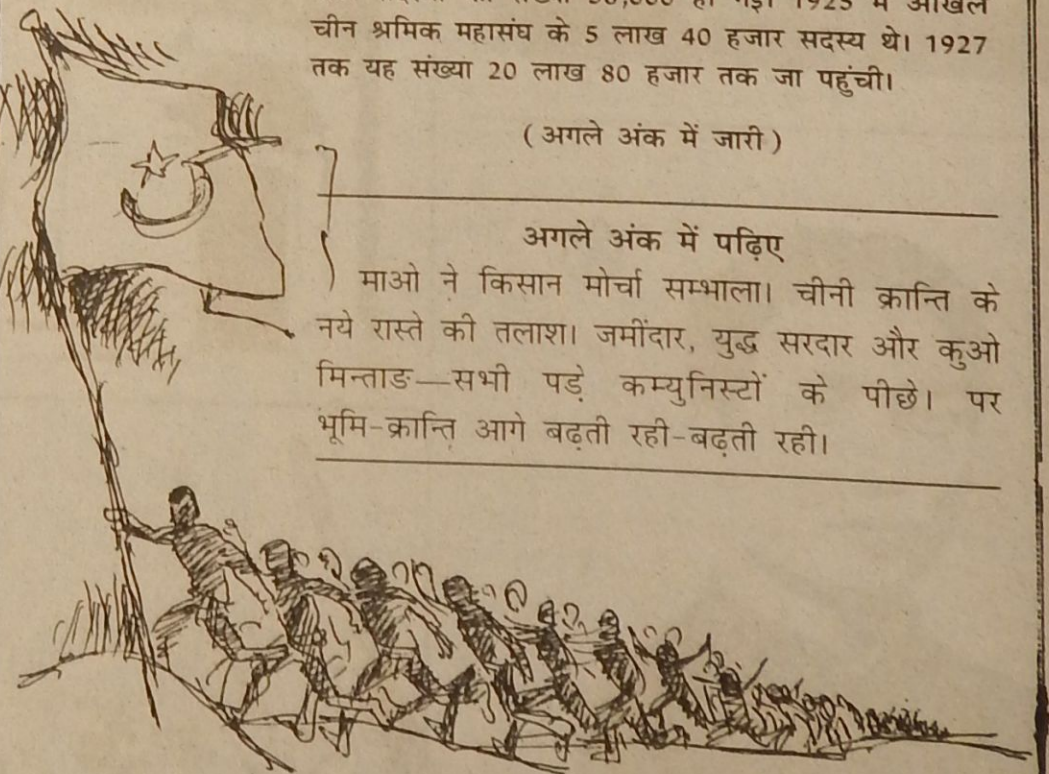 50,000 हो गई। 1925 में अखिल
चीन श्रमिक महासंघ के 5 लाख 40 हजार सदस्य थे। 1927
तक यह संख्या 20 लाख 80 हजार तक जा पहुंची।
(अगले अंक में जारी)
अगले अंक में पढ़िए
माओ ने किसान मोर्चा सम्भाला। चीनी क्रान्ति के
नये रास्ते की तलाश। जमींदार, युद्ध सरदार और कुओ
मिन्ताङ—सभी पड़े कम्युनिस्टों के पीछे। पर
भूमि-क्रान्ति आगे बढ़ती रही-बढ़ती रही।